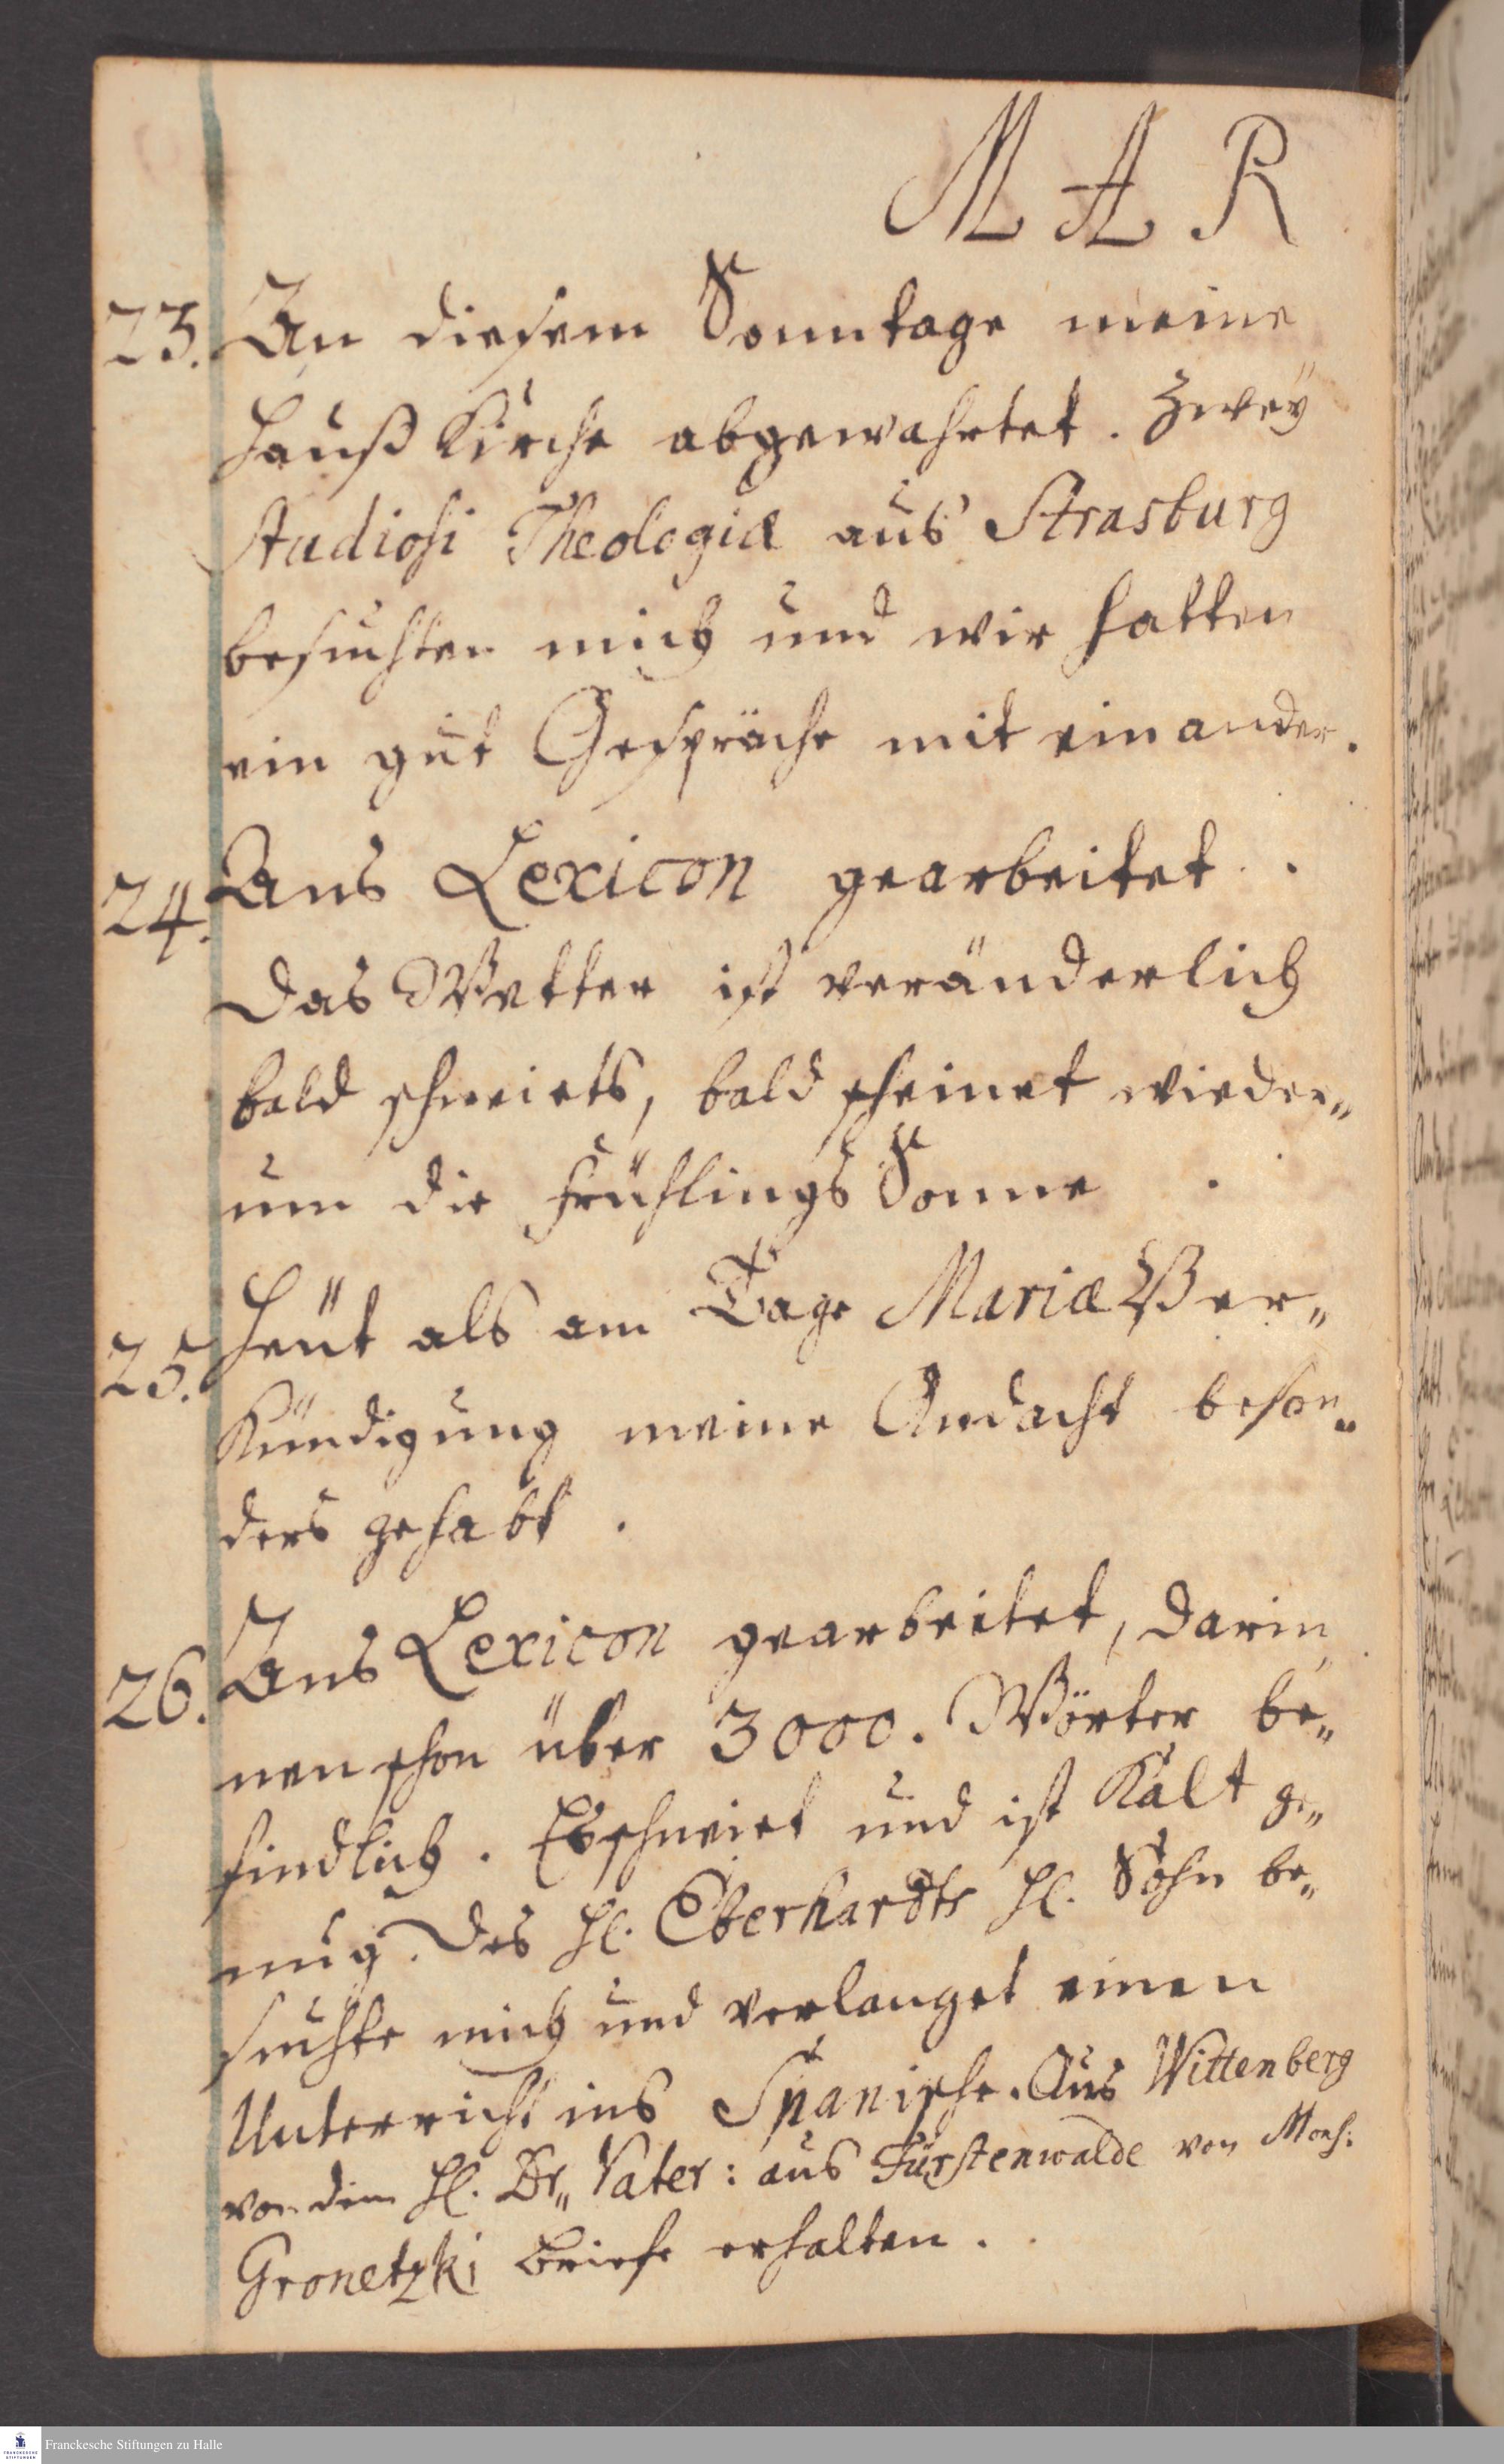 M A R
23. An diesem Sonntage meine
Hauß Kirche abgewahrtet. Zweÿ
Studiosi Theologiæ aus Strasburg
besuchten mich und wir hatten
ein gut Gespräche mit einander.
24. Ans Lexicon gearbeitet.
Das Wetter ist veränderlich
bald schneiets, bald scheinet wieder„
um die Frühlings Sonne.
25. Heüt als am Tage Mariæ Ver„
Kündigung meine Andacht beson„
ders gehabt.
26. Ans Lexicon gearbeitet, darin„
nen schon über 3000. Wörter be„
findlich. Es schneiet und ist Kalt ge„
nug. Des Hl. Eberhardts Hl. Sohn be„
suchte mich und verlanget einen
Unterricht ins Spanische. Aus Wittenberg
von dem Hl. Dr„ Vater: aus Fürstenwalde von Mons:
Gronetzki Briefe erhalten.
Franckesche Stiftungen zu Halle